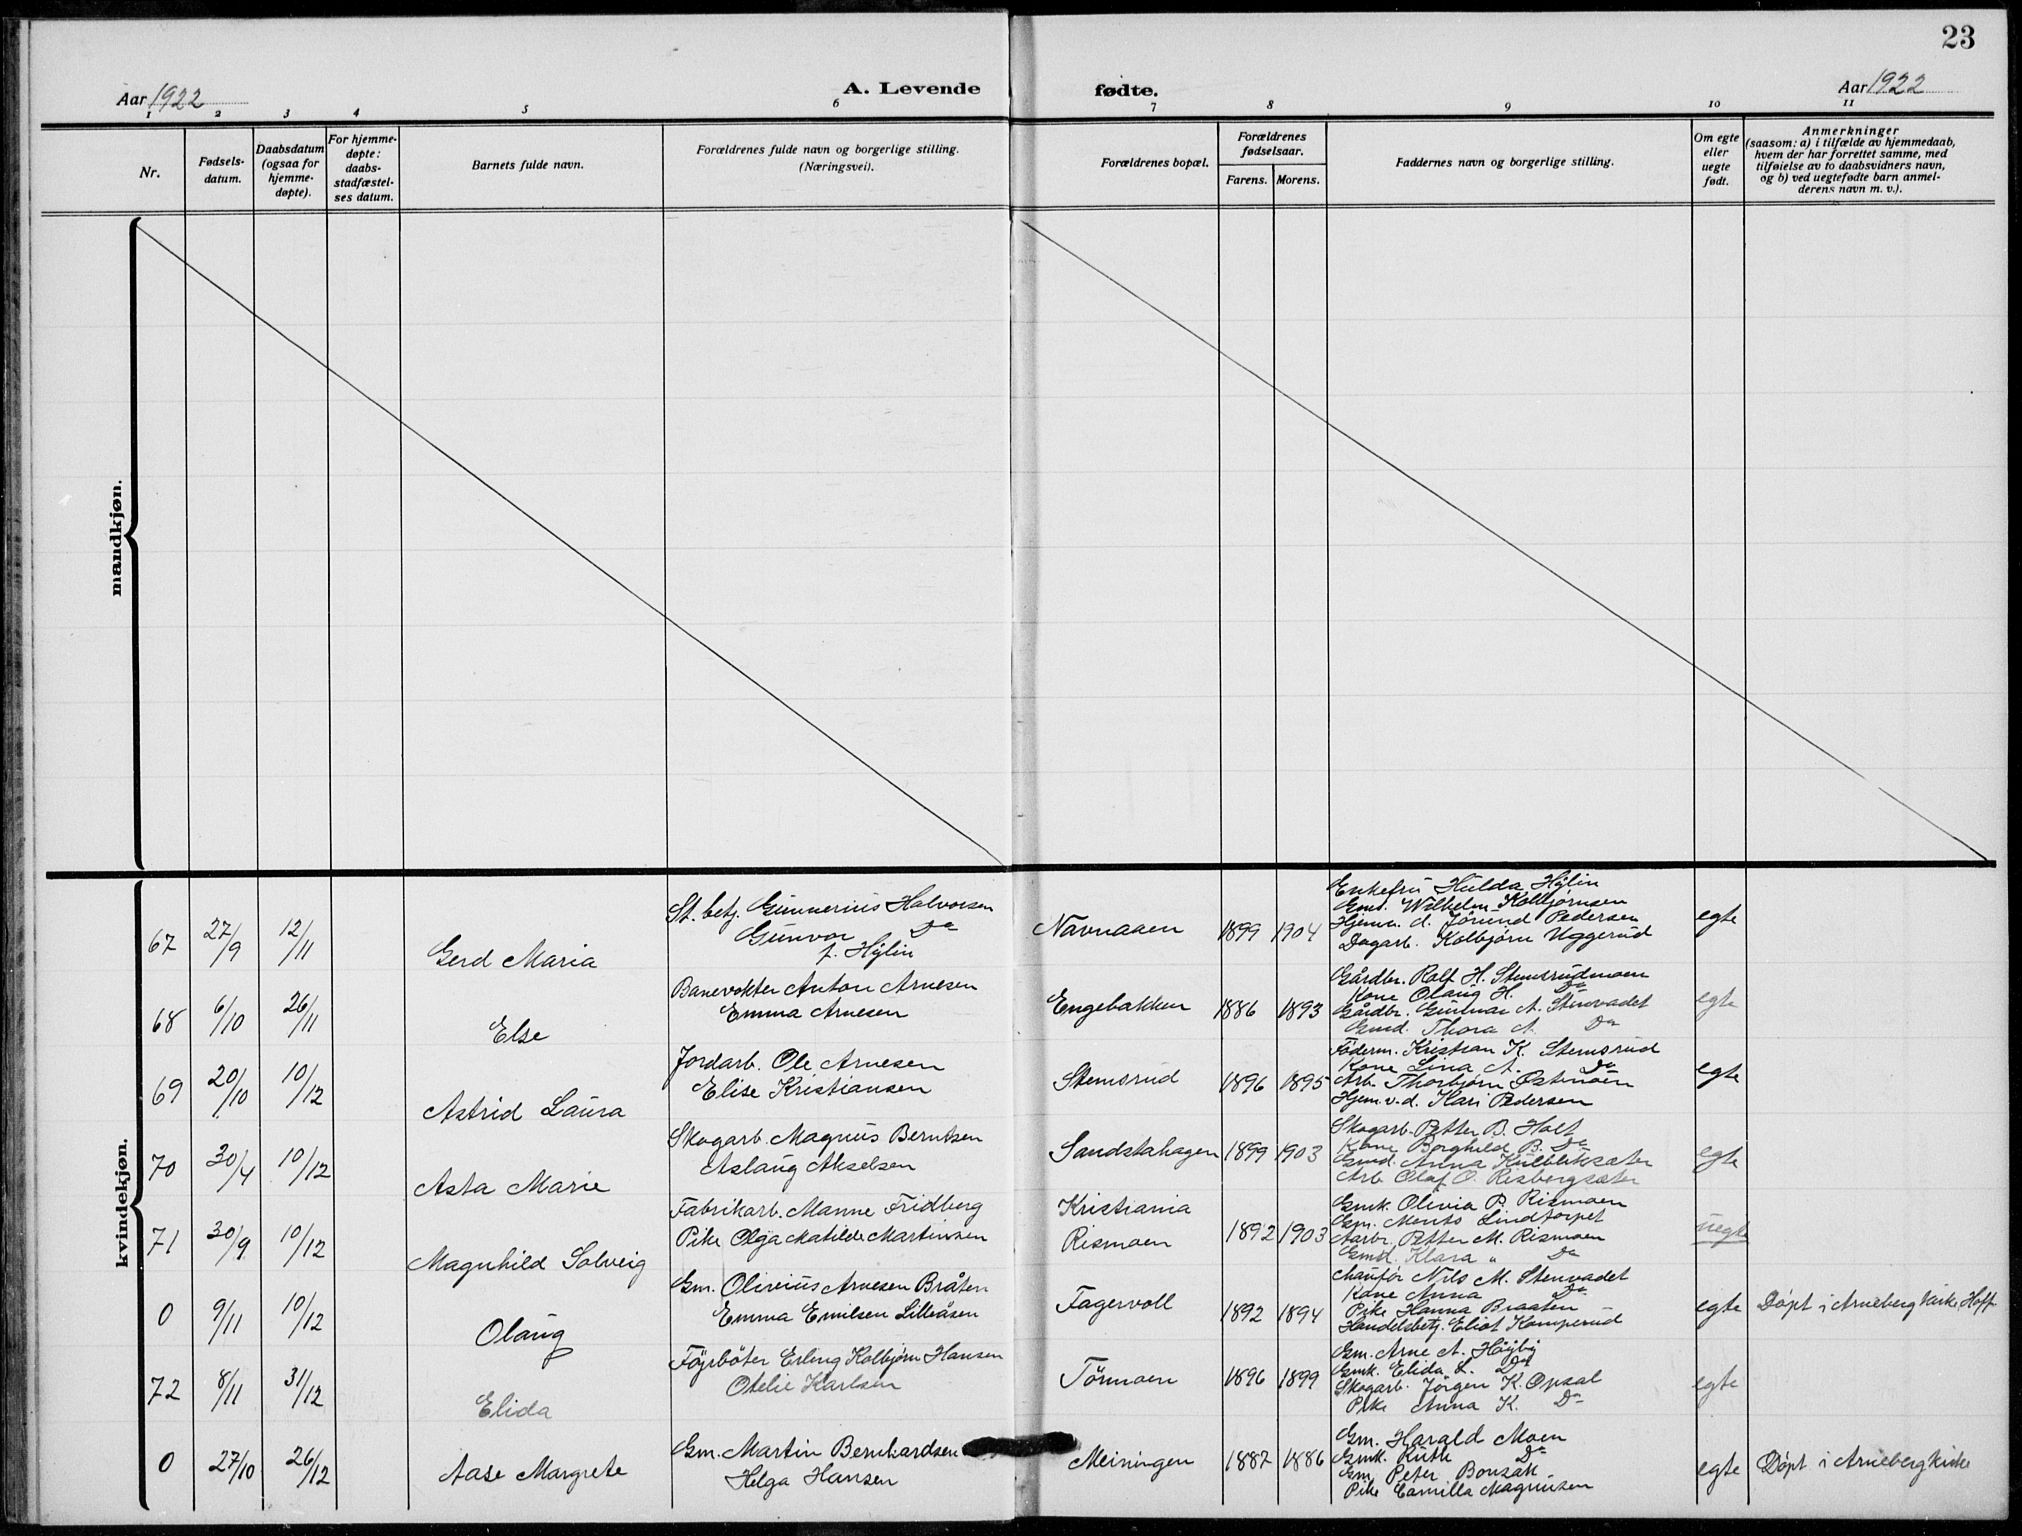 23
Aar 1922
A. Levende fødte.
Aar 1922
1 2 3 4 5 6 7 8 9 10 11
Nr.
Fødsels-
datum.
Daabsdatum
(ogsaa for
hjemme-
døpte).
For hjemme-
døpte:
daabs-
stadfæstel-
ses datum.
Barnets fulde navn.
Forældrenes fulde navn og borgerlige stilling.
(Næringsvei).
Forældrenes bopæl.
Forældrenes
fødselsaar.
Farens. Morens.
Faddernes navn og borgerlige stilling.
Om egte
eller
uegte
født.
Anmerkninger
(saasom: a) i tilfælde av hjemmedaab,
hvem der har forrettet samme, med
tilføielse av to daabsvidners navn,
og b) ved uegtefødte barn anmel-
derens navn m. v.).
mandkjøn.
kvindekjøn.
67 27/9 12/11
Gerd Maria
St. betj. Gunnerius Halvorsen
Gunvor Do
f. Hÿlin
Navnaaen
1899 1904
Enkefru Hulda Hÿlin
Gmd. Wilhelm Kolbjørnsen
Hjemv. d. Jörund Pedersen
Dagarb. Kolbjørn Uggerud
egte
68 6/10 26/11
Else
Banevokter Anton Arnesen
Emma Arnesen
Engebakken
1886 1893
Gårdbr. Rolf H. Stemsrudmoen
Kone Olaug H. Do
Gårdbr. Gunnar A. Stenvadet
Gmd. Thora A. Do
egte
69 20/10 10/12
Astrid Laura
Jordarb. Ole Arnesen
Elise Kristiansen
Stemsrud
1896 1895
Föderm. Kristian K. Stemsrud
Kone Lina A. Do
Arb. Thorbjørn Østmoen
Hjem.v.d. Kari Pedersen
egte
70 30/4 10/12
Asta Marie
Skogarb. Magnus Berntsen
Aslaug Akselsen
Sandstahagen
1899 1903
Skogarb. Petter B. Holt
Kone Borghild B. Do
Gmd. Anna Kulbliksæter
Arb. Olaf O. Risbergsæter
egte
71 30/9 10/12
Magnhild Solveig
Fabrikarb. Manne Fridberg
Pike Olga Matilde Martinsen
Kristiania
Rismoen
1892 1903
Gmk. Olivia P. Rismoen
Gm. Mentz Lindtorpet
Petter M. Rismoen
Gmd. Klara " Do
uegte
0 9/11 10/12
Olaug
Gm. Olivius Arnesen Bråten
Emma Emilsen Lilleåsen
Fagervoll
1892 1894
Chaufør Nils M. Stenvadet
Kone Anna Do
Pike Hanna Braaten
Handelsbetj. Eliot Kamperud
egte
Døpt i Arneberg kirke Hoff
72 8/11 31/12
Elida
Föÿrböter Erling Kolbjørn Hansen
Otelie Karlsen
Törmoen
1896 1899
Gm. Arne A. Höÿbÿ
Gmk. Elida L. Do
Skogarb. Jörgen K. Opsal
Pike Anna K. Do
egte
0 27/10 26/12
Aase Margrete
Gm. Martin Bernhardsen
Helga Hansen
Meiningen
1887 1886
Gm. Harald Moen
Gmk. Ruth Do
Gm. Peter Bonsak
Pike Camilla Magnusen
egte
Døpt i Arneberg kirke